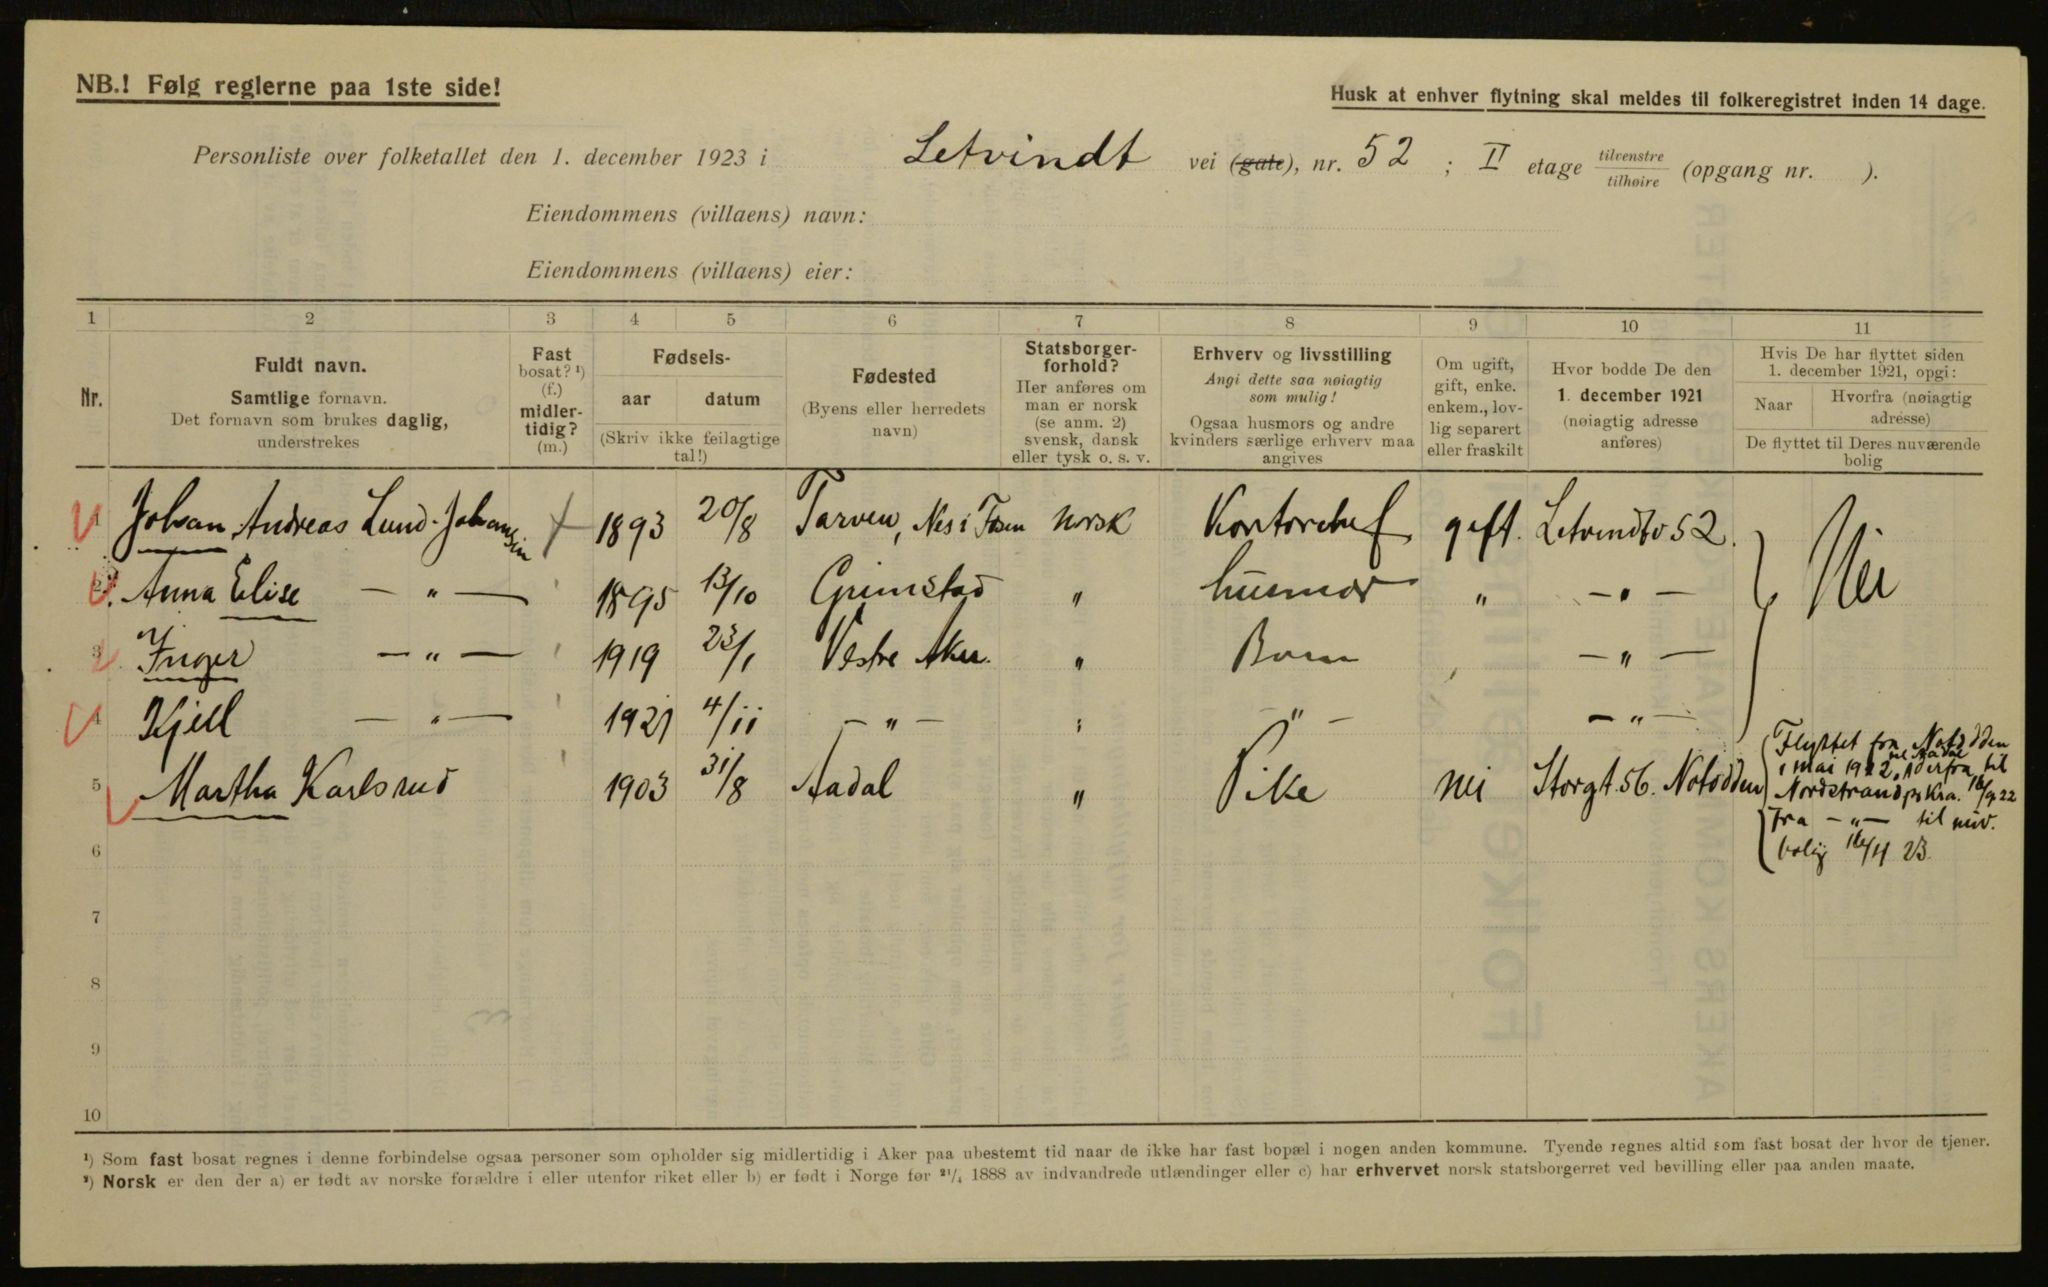 NB.! Følg reglerne paa 1ste side!
Husk at enhver flytning skal meldes til folkeregistret inden 14 dage.
Personliste over folketallet den 1. december 1923 i Letvindt vei (gate), nr. 52 ; II etage tilvenstre tilhøire (opgang nr. ).
Eiendommens (villaens) navn:
Eiendommens (villaens) eier:
1 2 3 4 5 6 7 8 9 10 11
Nr.
Fuldt navn.
Samtlige fornavn.
Det fornavn som brukes daglig,
understrekes
Fast
bosat? ¹)
(f.)
midler-
tidig?
(m.)
Fødsels-
aar datum
(Skriv ikke feilagtige
tal!)
Fødested
(Byens eller herredets
navn)
Statsborger-
forhold?
Her anføres om
man er norsk
(se anm. 2)
svensk, dansk
eller tysk o. s. v.
Erhverv og livsstilling
Angi dette saa nøiagtig
som mulig!
Ogsaa husmors og andre
kvinders særlige erhverv maa
angives
Om ugift,
gift, enke.
enkem., lov-
lig separert
eller fraskilt
Hvor bodde De den
1. december 1921
(nøiagtig adresse
anføres)
Hvis De har flyttet siden
1. december 1921, opgi:
Naar
Hvorfra (nøiagtig
adresse)
De flyttet til Deres nuværende
bolig
1 Johan Andreas Lund-Johansen f 1893 20/8 Tarven, Nes i Fosen norsk Kontorchef gift. Letvindtv 52. Nei
2 Anna Elise — " — 1895 13/10 Grimstad " husmor " — " —
3 Inger — " — 1919 23/1 Vestre Aker. " Barn — " —
4 Kjell — " — 1921 4/11 — " — " — " — — " —
5 Martha Karlsrud 1903 31/8 Aadal " Pike nei Storgt. 56. Notodden
Flyttet fra Notodden
i mai 1922, derfra til
Nordstrand pr Kra. 16/9 22
Fra — " — til nuv.
bolig 16/4 23.
6
7
8
9
10
¹) Som fast bosat regnes i denne forbindelse ogsaa personer som opholder sig midlertidig i Aker paa ubestemt tid naar de ikke har fast bopæl i nogen anden kommune. Tyende regnes altid som fast bosat der hvor de tjener.
²) Norsk er den der a) er født av norske forældre i eller utenfor riket eller b) er født i Norge før ²¹/₄ 1888 av indvandrede utlændinger eller c) har erhvervet norsk statsborgerret ved bevilling eller paa anden maate.